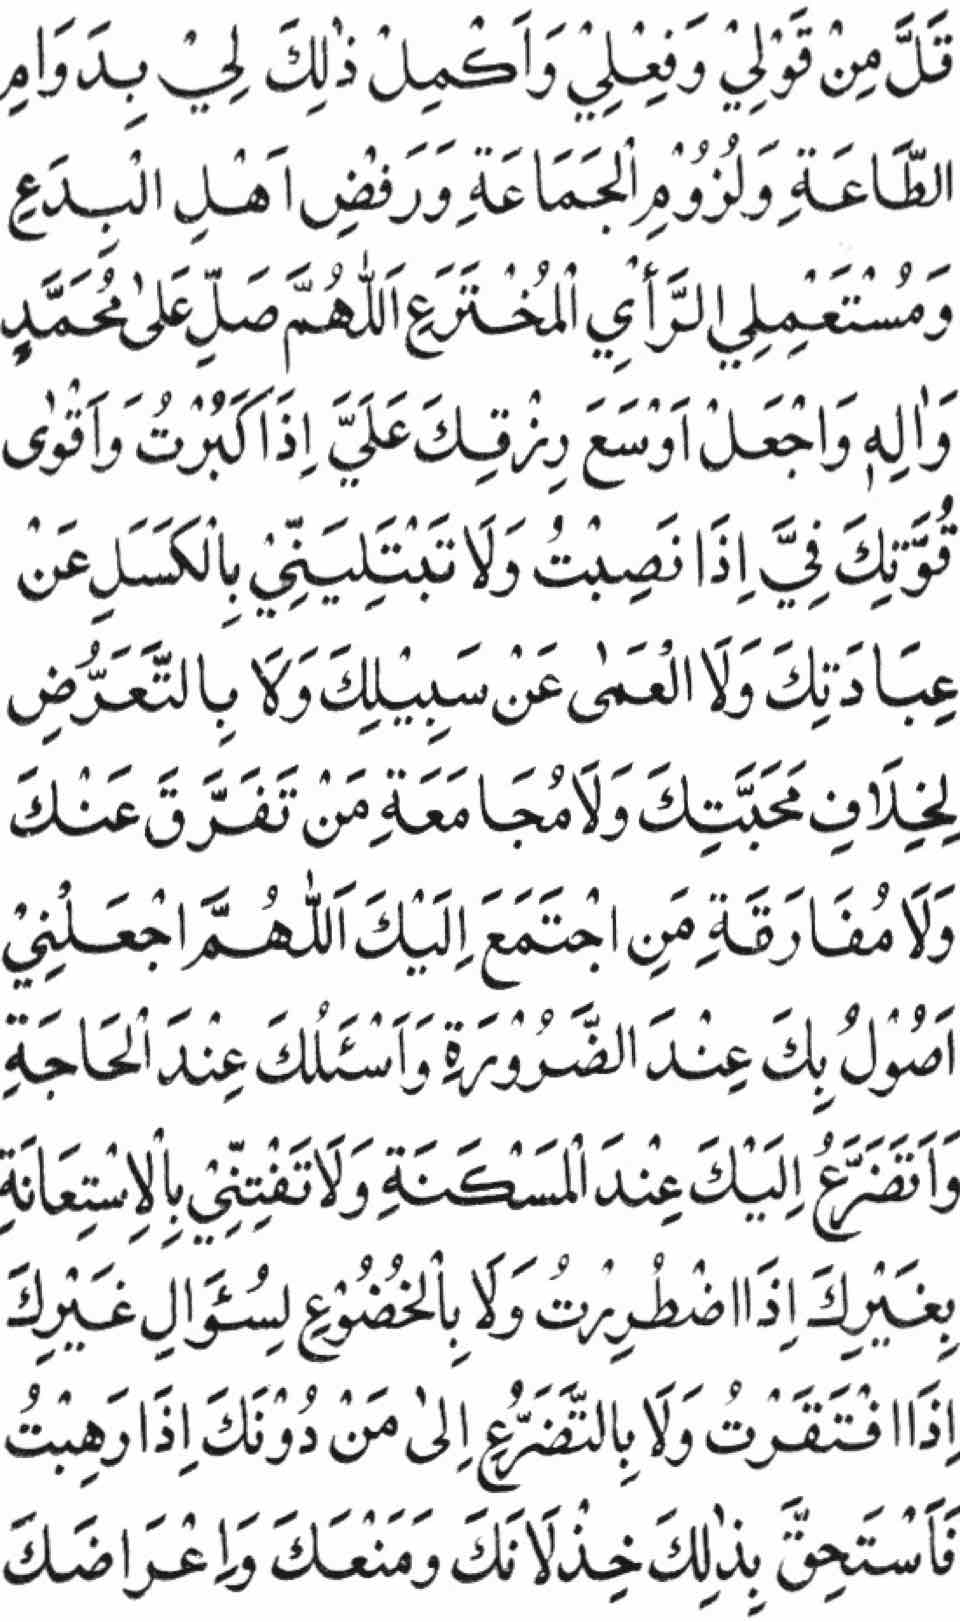 قَلَّ مِنْ قَوْلِيْ وَفِعْلِيْ وَاَكْمِلْ ذٰلِكَ لِيْ بِدَوَامِ
الطَّاعَةِ وَلُزُوْمِ الْجَمَاعَةِ وَرَفْضِ اَهْلِ الْبِدَعِ
وَمُسْتَعْمِلِي الرَّأْيِ الْمُخْتَرَعِ اَللّٰهُمَّ صَلِّ عَلٰى مُحَمَّدٍ
وَاٰلِهٖ وَاجْعَلْ اَوْسَعَ رِزْقِكَ عَلَيَّ اِذَا كَبُرْتُ وَاَقْوٰى
قُوَّتِكَ فِيَّ اِذَا نَصِبْتُ وَلَا تَبْتَلِيَنِّيْ بِالْكَسَلِ عَنْ
عِبَادَتِكَ وَلَا الْعَمٰى عَنْ سَبِيْلِكَ وَلَا بِالتَّعَرُّضِ
لِخِلَافِ مَحَبَّتِكَ وَلَا مُجَامَعَةِ مَنْ تَفَرَّقَ عَنْكَ
وَلَا مُفَارَقَةِ مَنِ اجْتَمَعَ اِلَيْكَ اَللّٰهُمَّ اجْعَلْنِيْ
اَصُوْلُ بِكَ عِنْدَ الضَّرُوْرَةِ وَاَسْئَلُكَ عِنْدَ الْحَاجَةِ
وَاَتَضَرَّعُ اِلَيْكَ عِنْدَ الْمَسْكَنَةِ وَلَا تَفْتِنِّيْ بِالْاِسْتِعَانَةِ
بِغَيْرِكَ اِذَا اضْطُرِرْتُ وَلَا بِالْخُضُوْعِ لِسُؤَالِ غَيْرِكَ
اِذَا افْتَقَرْتُ وَلَا بِالتَّضَرُّعِ اِلٰى مَنْ دُوْنَكَ اِذَا رَهِبْتُ
فَاَسْتَحِقَّ بِذٰلِكَ خِذْلَانَكَ وَمَنْعَكَ وَاِعْرَاضَكَ